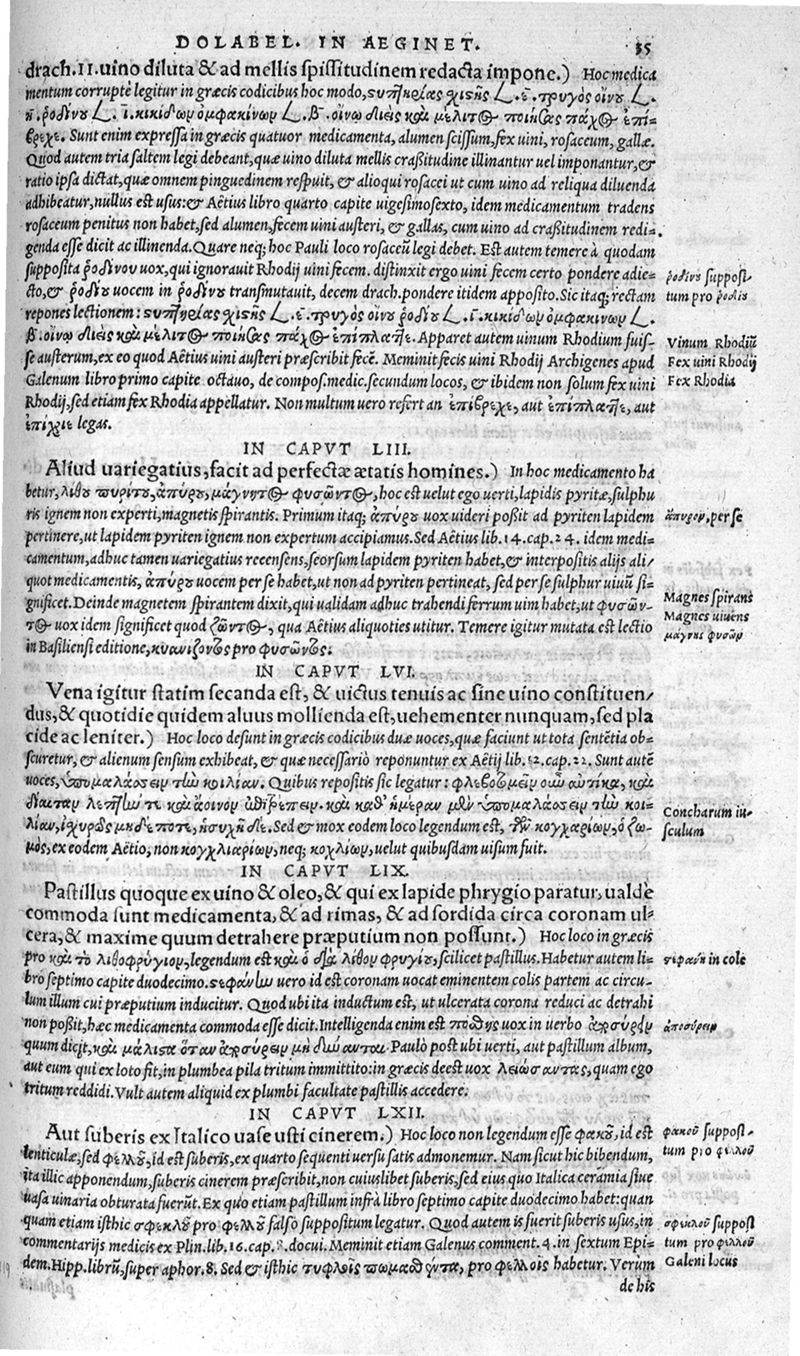 DOLABEL. IN AEGINET.
35
drach. II. uino diluta & ad mellis spissitudinem redacta impone.) Hoc medica
mentum corrupte legitur in græcis codicibus hoc modo,
Sunt enim expressa in græcis quatuor medicamenta, alumen scissum, fex uini, rosaceum, gallæ.
Quod autem tria saltem legi debeant, quæ uino diluta mellis craßitudine illinantur uel imponantur, &
ratio ipsa dictat, quæ omnem pinguedinem respuit, & alioqui rosacei ut cum uino ad reliqua diluenda
adhibeatur, nullus est usus: & Aëtius libro quarto capite uigesimosexto, idem medicamentum tradens
rosaceum penitus non habet, sed alumen, fecem uini austeri, & gallas, cum uino ad craßitudinem redi=
genda esse dicit ac illinenda. Quare neq; hoc Pauli loco rosaceū legi debet. Est autem temere à quodam
supposita ῥοδίνου uox, qui ignorauit Rhodij uini fecem. distinxit ergo uini fecem certo pondere adie=
cto, & ῥοδίου uocem in ῥοδίνου transmutauit, decem drach. pondere itidem apposito. Sic itaq; rectam
repones lectionem:
Apparet autem uinum Rhodium fuis=
se austerum, ex eo quod Aëtius uini austeri præscribit fecē. Meminit fecis uini Rhodij Archigenes apud
Galenum libro primo capite octauo, de compos. medic. secundum locos, & ibidem non solum fex uini
Rhodij, sed etiam fex Rhodia appellatur. Non multum uero refert an ἐπίβρεχε, aut ἐπίπλαττε, aut
ἐπίχριε legas.
ῥοδίνου supposi=
tum pro ῥοδίου
Vinum Rhodiū
Fex uini Rhodij
Fex Rhodia
IN CAPVT LIII.
Aliud uariegatius, facit ad perfectæ ætatis homines.) In hoc medicamento ha
betur, λίθου πυρίτου, ἀπύρου, μάγνητος φυσῶντος, hoc est uelut ego uerti, lapidis pyritæ, sulphu
ris ignem non experti, magnetis spirantis. Primum itaq; ἀπύρου uox uideri poßit ad pyriten lapidem
pertinere, ut lapidem pyriten ignem non expertum accipiamus. Sed Aëtius lib. 14. cap. 24. idem medi=
camentum, adhuc tamen uariegatius recensens, seorsum lapidem pyriten habet, & interpositis alijs ali/
quot medicamentis, ἀπύρου uocem per se habet, ut non ad pyriten pertineat, sed per se sulphur uiuū si=
gnificet. Deinde magnetem spirantem dixit, qui ualidam adhuc trahendi ferrum uim habet, ut φυσῶν-
τος uox idem significet quod ζῶντος, qua Aëtius aliquoties utitur. Temere igitur mutata est lectio
in Basiliensi editione, κυανίζοντος pro φυσῶντος.
ἄπυρον, per se
Magnes spirans
Magnes uiuens
μάγνης φυσῶν
IN CAPVT LVI.
Vena igitur statim secanda est, & uictus tenuis ac sine uino constituen/
dus, & quotidie quidem aluus mollienda est, uehementer nunquam, sed pla
cide ac leniter.) Hoc loco desunt in græcis codicibus duæ uoces, quæ faciunt ut tota sentētia ob=
scuretur, & alienum sensum exhibeat, & quæ necessariò reponuntur ex Aëtij lib. 12. cap. 22. Sunt autē
uoces, ὑπομαλάσσειν τὴν κοιλίαν. Quibus repositis sic legatur: φλεβοτομεῖν οὖν αὐτίκα, καὶ
δίαιταν λεπτήν τε καὶ ἄοινον
καὶ καθ' ἡμέραν μὲν ὑπομαλάσσειν τὴν κοι=
λίαν, ἰσχυρῶς μηδέποτε, ἡσυχῆ δέ. Sed & mox eodem loco legendum est, τῶν κογχαρίων, ὁ ζω=
μὸς, ex eodem Aëtio, non κογχλιαρίων, neq; κοχλίων, uelut quibusdam uisum fuit.
Concharum iu=
sculum
IN CAPVT LIX.
Pastillus quoque ex uino & oleo, & qui ex lapide phrygio paratur, ualde
commoda sunt medicamenta, & ad rimas, & ad sordida circa coronam ul=
cera, & maxime quum detrahere præputium non possunt.) Hoc loco in græcis
pro καὶ τὸ λιθοφρύγιον, legendum est καὶ ὁ διὰ λίθου φρυγίου, scilicet pastillus. Habetur autem li=
bro septimo capite duodecimo. στεφάνην uero id est coronam uocat eminentem colis partem ac circu=
lum illum cui præputium inducitur. Quod ubi ita inductum est, ut ulcerata corona reduci ac detrahi
non poßit, hæc medicamenta commoda esse dicit. Intelligenda enim est πόσθης uox in uerbo ἀποσύρειν
quum dicit, καὶ μάλιστα ὅταν ἀποσύρειν μὴ δύωνται. Paulò post ubi uerti, aut pastillum album,
aut eum qui ex loto fit, in plumbea pila tritum immittito: in græcis deest uox λειώσαντας, quam ego
tritum reddidi. Vult autem aliquid ex plumbi facultate pastillis accedere.
στεφάνη in cole
ἀποσύρειν
IN CAPVT LXII.
Aut suberis ex Italico uase usti cinerem.) Hoc loco non legendum esse φακοῦ, id est
lenticulæ, sed φελλοῦ, id est suberis, ex quarto sequenti uersu satis admonemur. Nam sicut hic bibendum,
ita illic apponendum, suberis cinerem præscribit, non cuiuslibet suberis, sed eius quo Italica ceramia siue
uasa uinaria obturata fuerūt. Ex quo etiam pastillum infrà libro septimo capite duodecimo habet: quan
quam etiam isthic σφεκλοῦ pro φελλοῦ falso suppositum legatur. Quod autem is fuerit suberis usus, in
commentarijs medicis ex Plin. lib. 16. cap. 8. docui. Meminit etiam Galenus comment. 4. in sextum Epi=
dem. Hipp. librū, super aphor. 8. Sed & isthic τυφλοῖς πωμασθέντα, pro φελλοῖς habetur. Verum
de his
φακοῦ supposi=
tum pro φελλοῦ
σφεκλοῦ supposi
tum pro φελλοῦ
Galeni locus